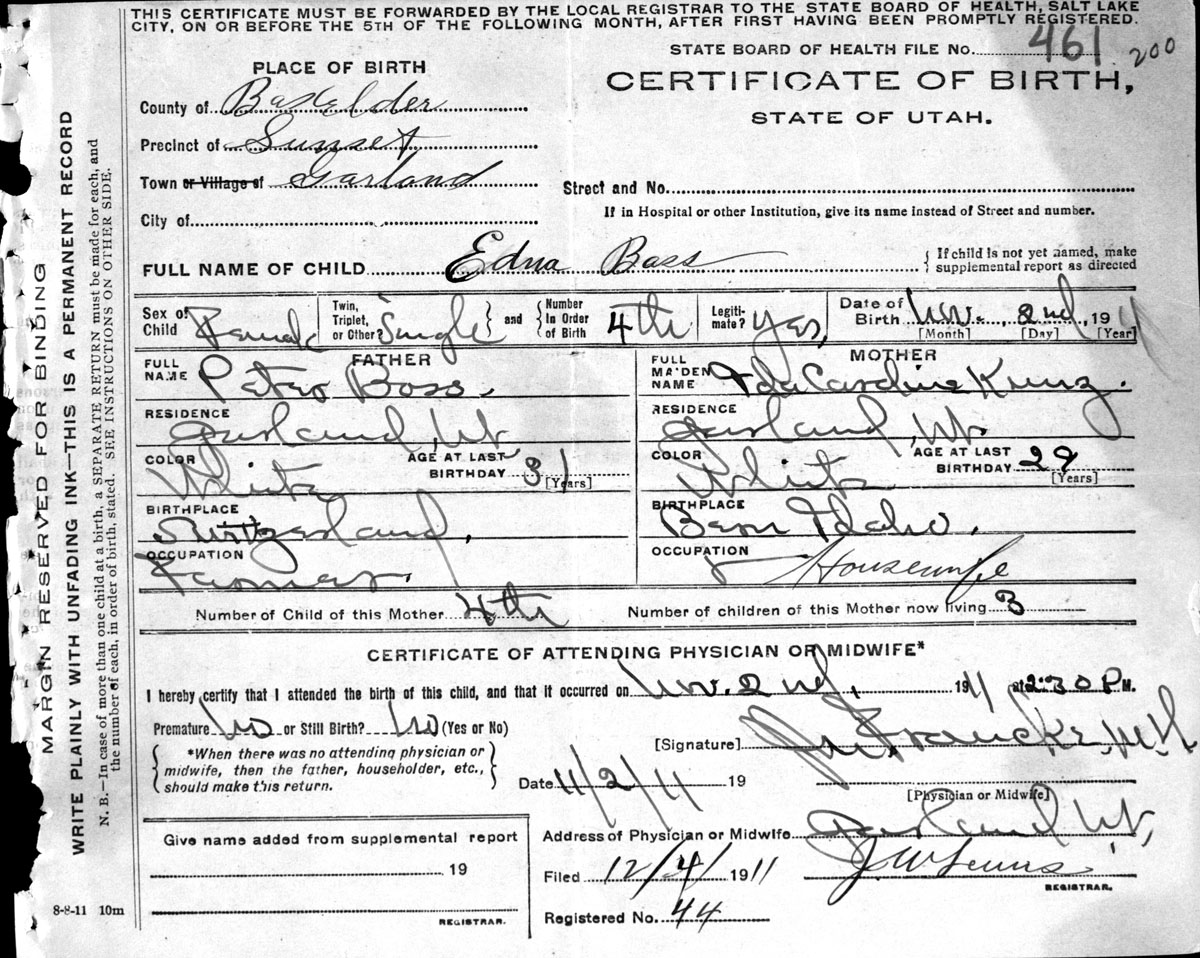 THIS CERTIFICATE MUST BE FORWARDED BY THE LOCAL REGISTRAR TO THE STATE BOARD OF HEALTH, SALT LAKE
CITY, ON OR BEFORE THE 5TH OF THE FOLLOWING MONTH, AFTER FIRST HAVING BEEN PROMPTLY REGISTERED.
STATE BOARD OF HEALTH FILE No. 461 200
PLACE OF BIRTH
CERTIFICATE OF BIRTH,
STATE OF UTAH.
County of Box Elder
Precinct of Sunset
Town or Village of Garland
Street and No.
City of
If in Hospital or other Institution, give its name instead of Street and number.
FULL NAME OF CHILD Edna Boss
{ If child is not yet named, make
supplemental report as directed
Sex of Child Female
Twin, Triplet, or Other? Single } and { Number in Order of Birth 4th
Legitimate? Yes,
Date of Birth Nov. 2nd, 1911
[Month] [Day] [Year]
FATHER
FULL NAME Peter Boss.
RESIDENCE Garland, Ut.
COLOR White
AGE AT LAST BIRTHDAY 31
[Years]
BIRTHPLACE Switzerland,
OCCUPATION Farmer.
MOTHER
FULL MAIDEN NAME Ida Caroline Kunz.
RESIDENCE Garland, Ut.
COLOR White
AGE AT LAST BIRTHDAY 29
[Years]
BIRTHPLACE Bern Idaho.
OCCUPATION Housewife
Number of Child of this Mother 4th
Number of children of this Mother now living 3
CERTIFICATE OF ATTENDING PHYSICIAN OR MIDWIFE*
I hereby certify that I attended the birth of this child, and that it occurred on Nov. 2nd, 1911 at 2:30 P.M.
Premature No or Still Birth? No (Yes or No)
{ *When there was no attending physician or
midwife, then the father, householder, etc.,
should make this return. }
[Signature] Francke, M.D.
[Physician or Midwife]
Date 11/2/11 19
Address of Physician or Midwife Garland Ut.
Filed 12/4/ 1911
J W
REGISTRAR.
Registered No. 44
Give name added from supplemental report
19
REGISTRAR.
8-8-11 10m
MARGIN RESERVED FOR BINDING
WRITE PLAINLY WITH UNFADING INK—THIS IS A PERMANENT RECORD
N. B.—In case of more than one child at a birth, a SEPARATE RETURN must be made for each, and
the number of each, in order of birth, stated. SEE INSTRUCTIONS ON OTHER SIDE.